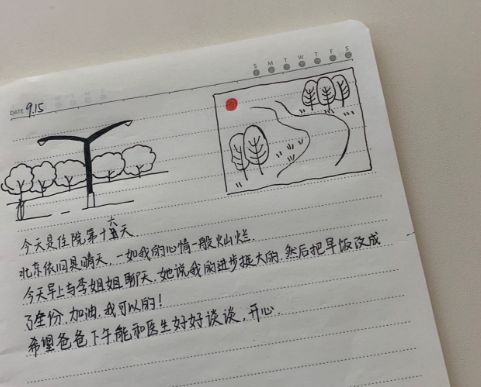 S M T W T F S
DATE 9.15
今天是住院第十六天
北京依旧是晴天,一如我的心情一般灿烂.
今天早上与李姐姐聊天,她说我的进步挺大的.然后把早饭改成
了全份.加油,我可以的!
希望爸爸下午能和医生好好谈谈,开心.